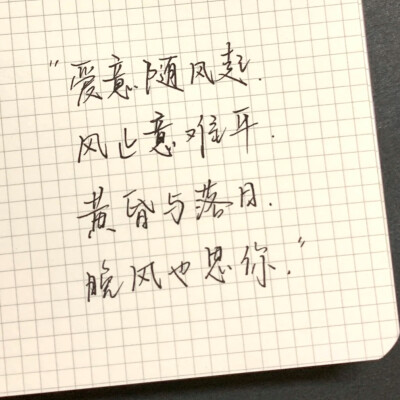 "爱意随风起.
风止意难平.
黄昏与落日.
晚风也思你."